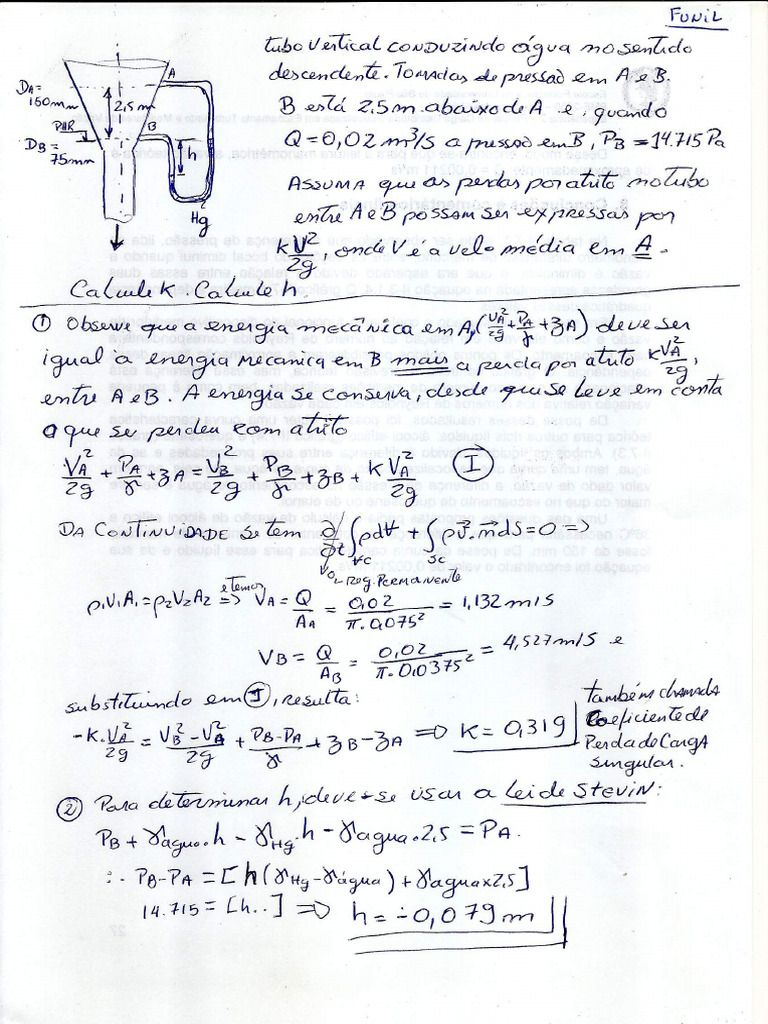 FUNIL
tubo vertical conduzindo água no sentido
descendente. Tomadas de pressão em A e B.
B está 2,5m abaixo de A e, quando
Q = 0,02 m³/s a pressão em B, P_B = 14.715 Pa
Assuma que as perdas por atrito no tubo
entre A e B possam ser expressas por
k V²/2g, onde V é a velo média em A.
Calcule k. Calcule h.
D_A = 150mm
A
2,5m
PHR
B
D_B = 75mm
h
Hg
① Observe que a energia mecânica em A, (V_A²/2g + P_A/γ + z_A) deve ser
igual à energia mecânica em B mais a perda por atrito k V_A²/2g,
entre A e B. A energia se conserva, desde que se leve em conta
o que se perdeu com atrito
V_A²/2g + P_A/γ + z_A = V_B²/2g + P_B/γ + z_B + k V_A²/2g Ⓘ
DA CONTINUIDADE se tem ∂/∂t ∫_VC ρ d∀ + ∫_SC ρ V⃗.n⃗ dS = 0 →
0, Reg. Permanente
ρ₁V₁A₁ = ρ₂V₂A₂ ⇒ e temos V_A = Q/A_A = 0,02/π.0,075² = 1,132 m/s
V_B = Q/A_B = 0,02/π.0,0375² = 4,527 m/s e
substituindo em Ⓘ, resulta:
-k.V_A²/2g = V_B² - V_A²/2g + P_B - P_A/γ + z_B - z_A ⇒ K = 0,319
também chamada
Coeficiente de
Perda de Carga
singular.
② Para determinar h, deve-se usar a Lei de Stevin:
P_B + γ_água.h - γ_Hg.h - γ_agua.2,5 = P_A.
∴ P_B - P_A = [h(γ_Hg - γ_água) + γ_agua x 2,5]
14.715 = [h..] ⇒ h = -0,079 m